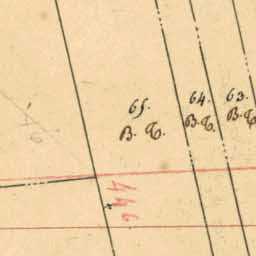 65. 64. 63.
B. T. B. T. B. T.
446